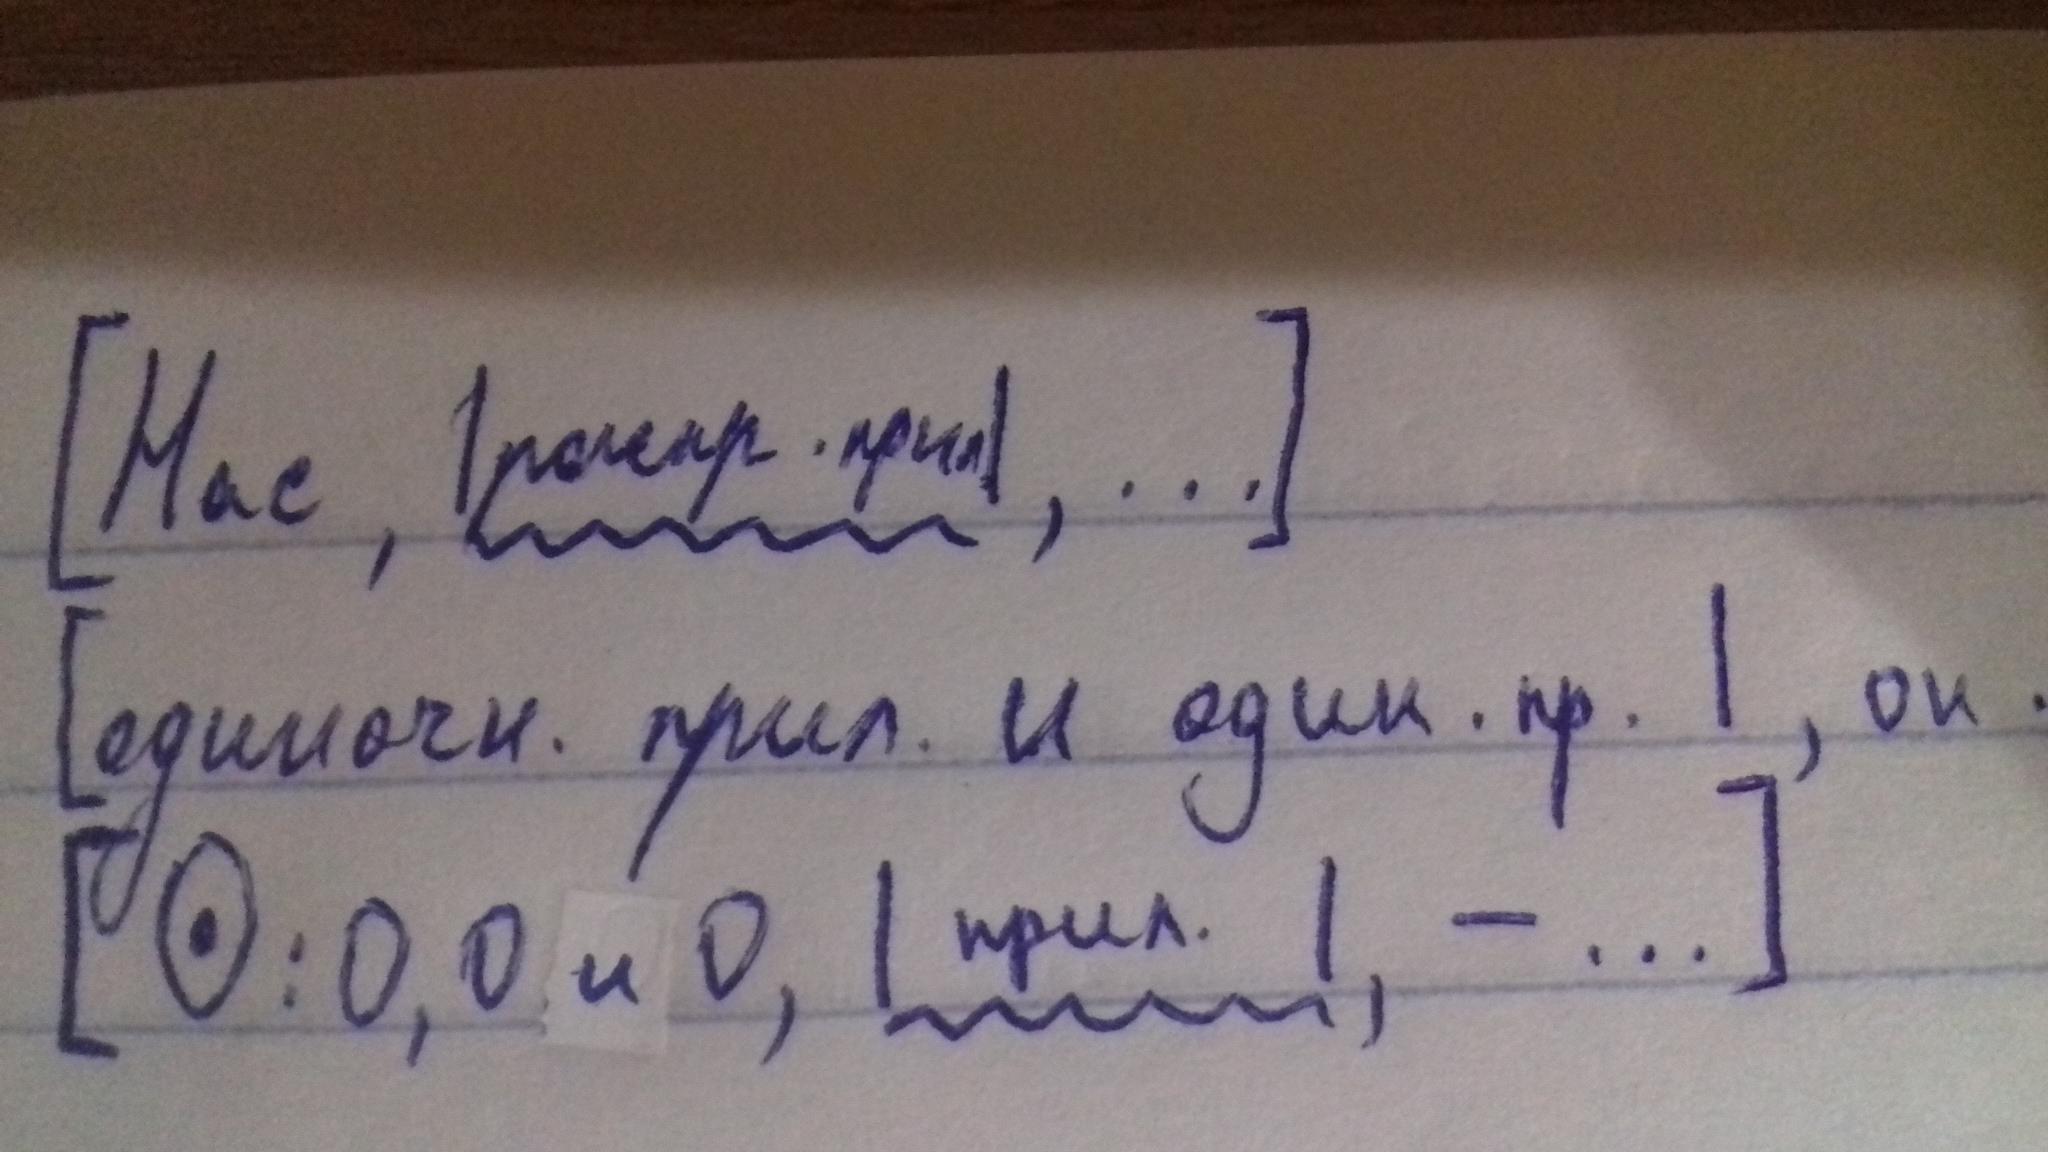 [Нас, |распр. прил|, ...]
[одиночн. прил. и один. пр.|, он.
[⊙: O, O и O, |прил.|, – ...]